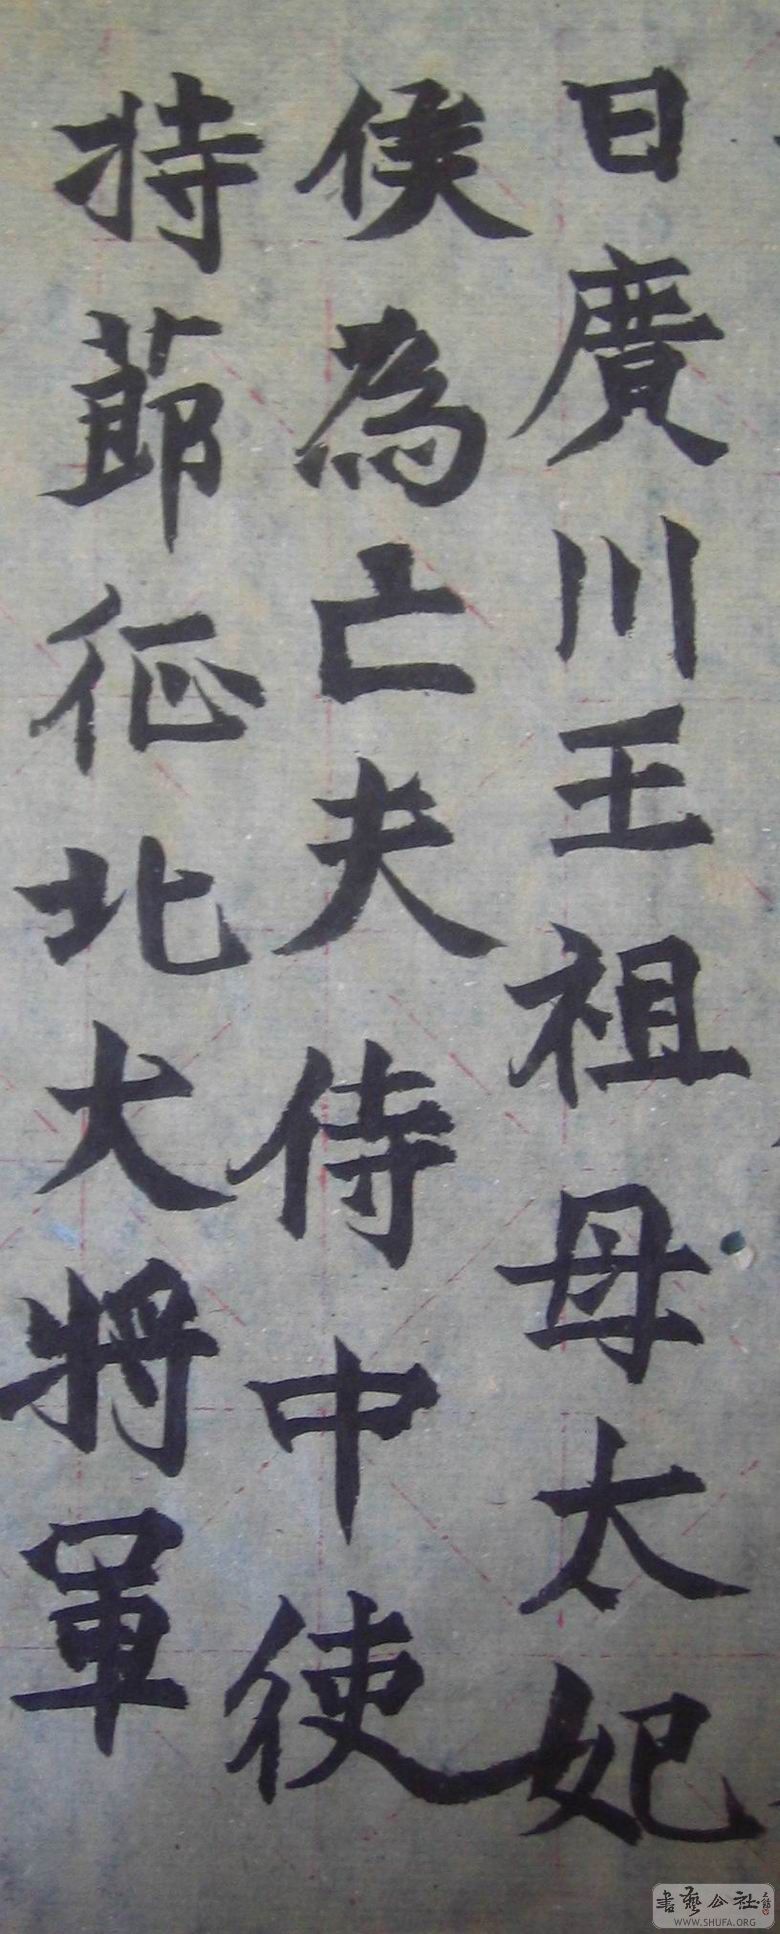 日廣川王祖母太妃
侯為亡夫侍中使
持節征北大將軍
書藝公社
WWW.SHUFA.ORG